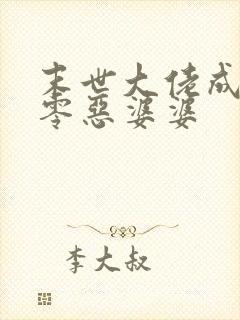 末世大佬成
零恶婆婆
李大叔